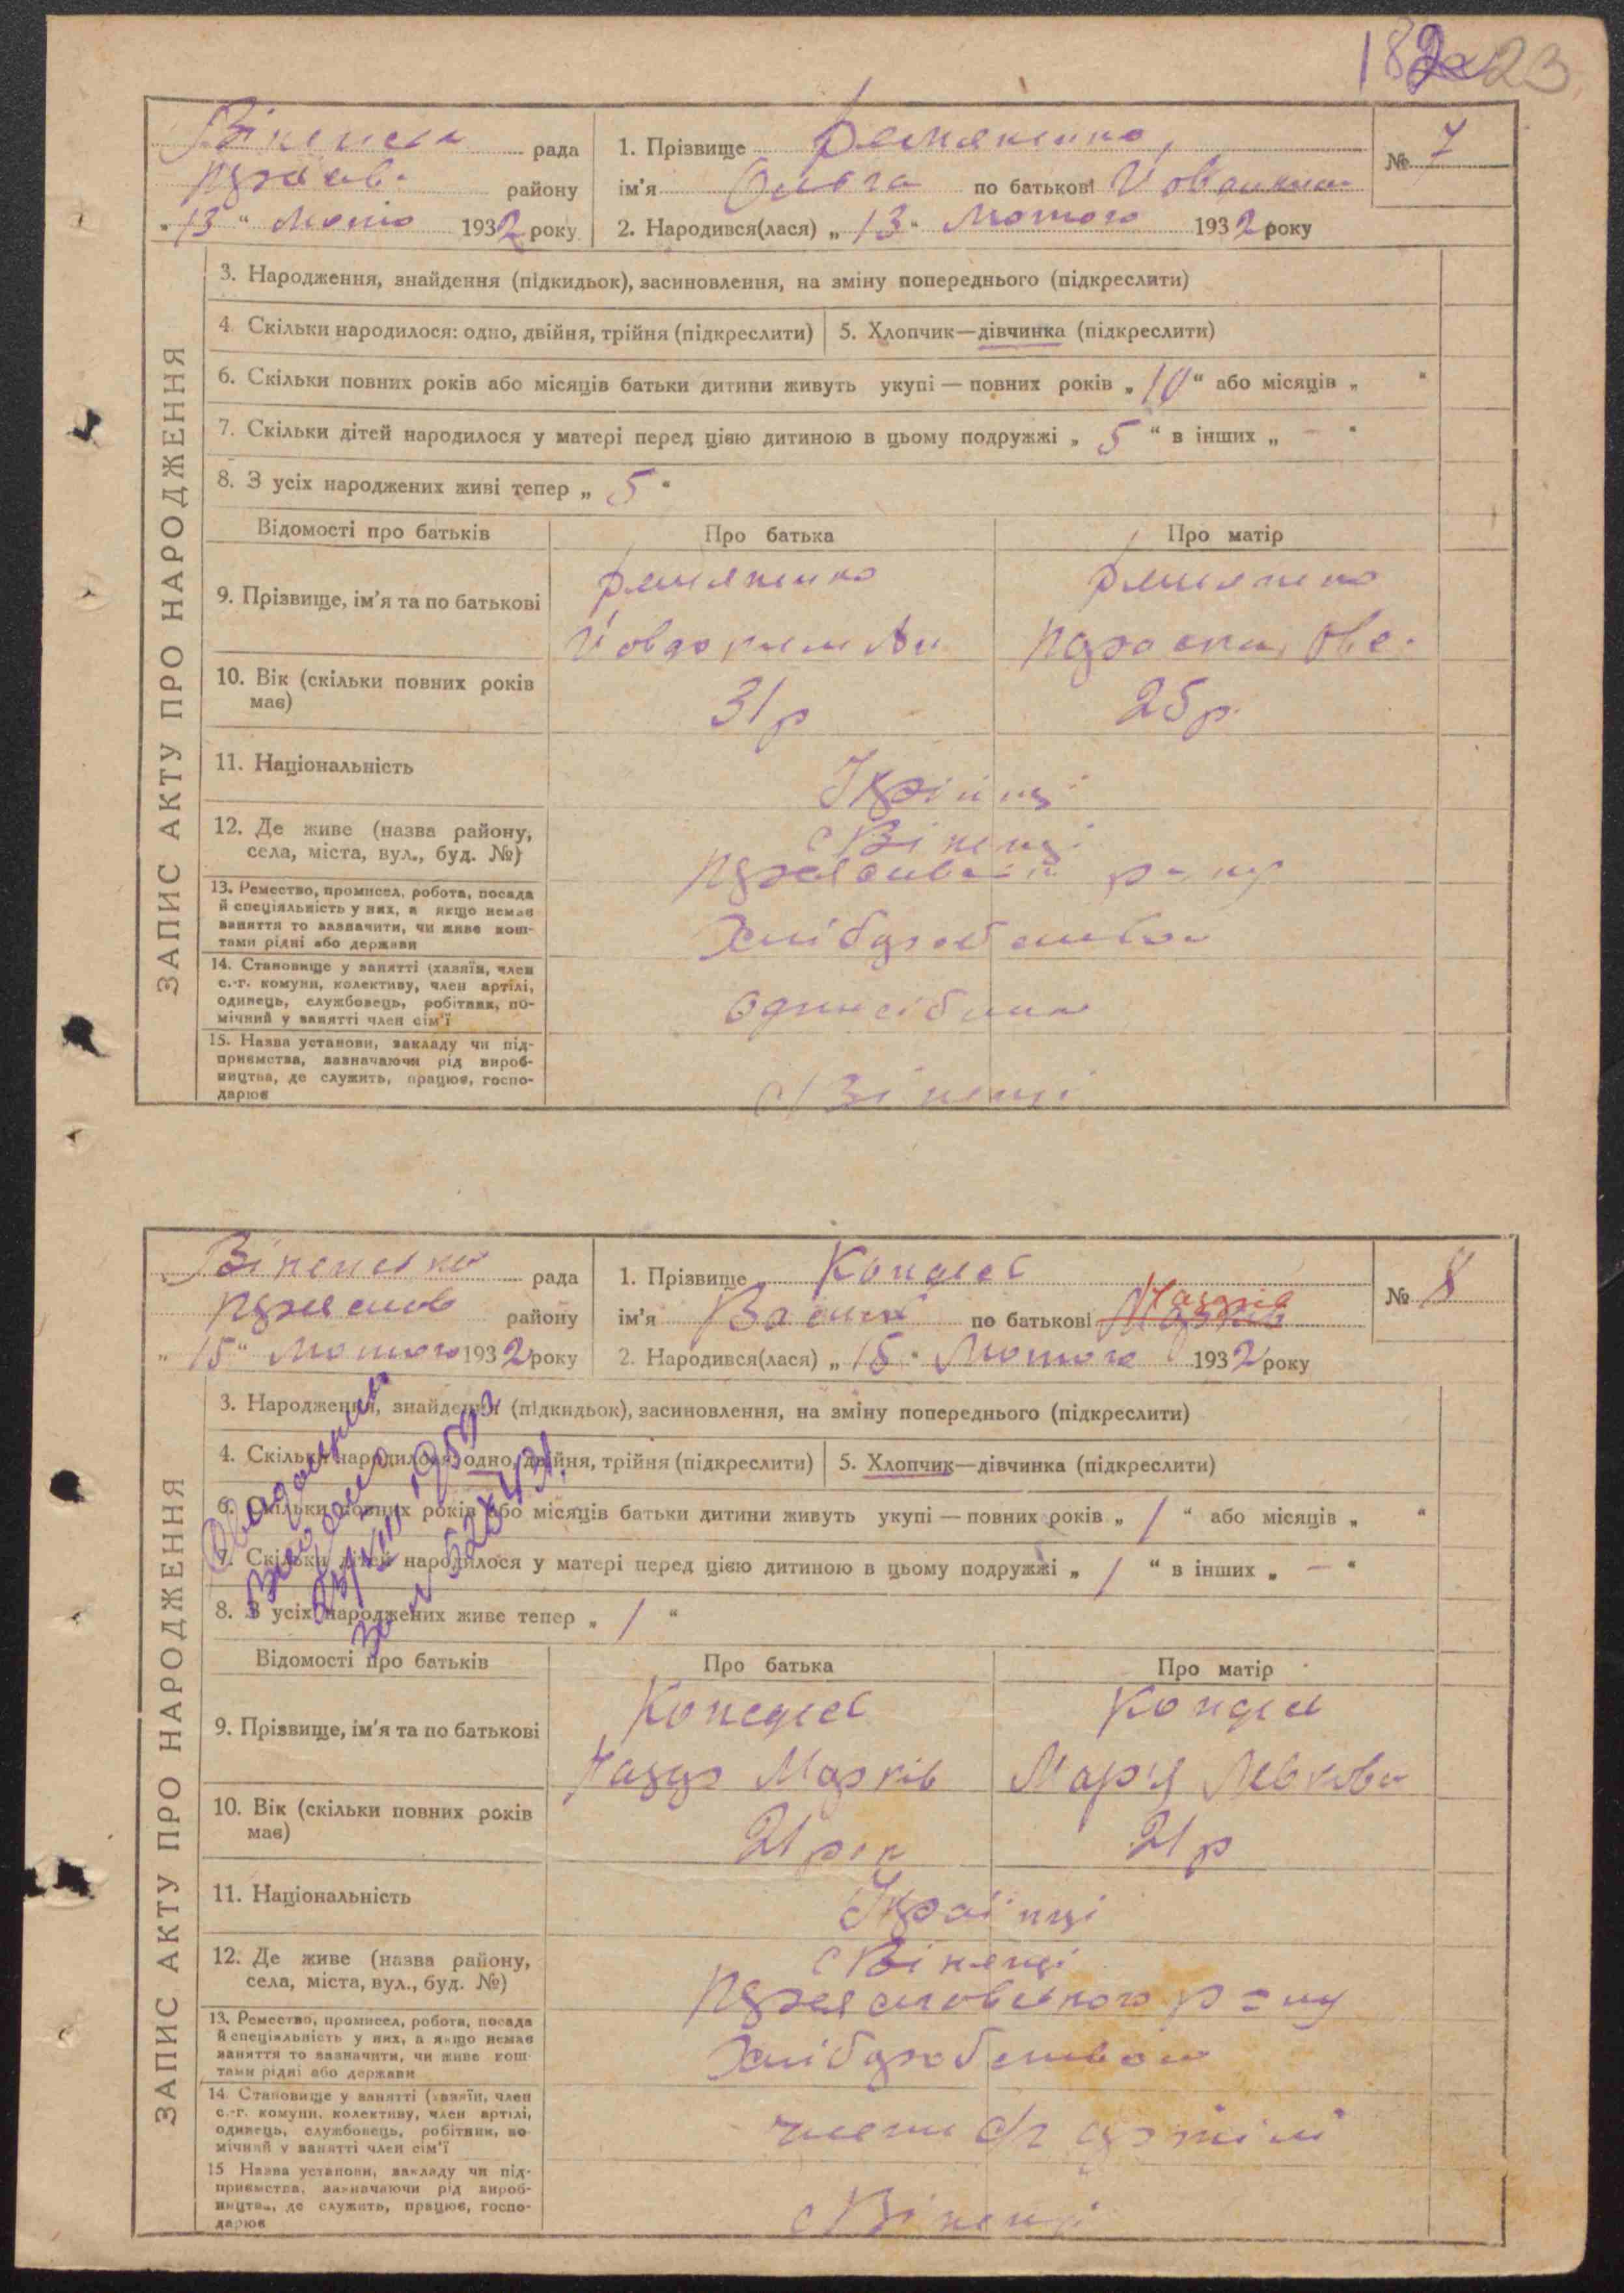 182 23
Віненська рада
району
"13" Лютого 1932 року
1. Прізвище Демяненко
ім'я Ольга по батькові
2. Народився(лася) „13" Лютого 1932 року
№ 7
ЗАПИС АКТУ ПРО НАРОДЖЕННЯ
3. Народження, знайдення (підкидьок), засиновлення, на зміну попереднього (підкреслити)
4. Скільки народилося: одно, двійня, трійня (підкреслити)
5. Хлопчик—дівчинка (підкреслити)
6. Скільки повних років або місяців батьки дитини живуть укупі — повних років „10" або місяців „ "
7. Скільки дітей народилося у матері перед цією дитиною в цьому подружжі „5" в інших „—"
8. З усіх народжених живі тепер „5"
Відомості про батьків Про батька Про матір
9. Прізвище, ім'я та по батькові
Демяненко
Демяненко
10. Вік (скільки повних років
має)
31 р
25 р.
11. Національність
Українці
12. Де живе (назва району,
села, міста, вул., буд. №)
с Віненці
району
13. Ремество, промисел, робота, посада
й спеціяльність у них, а якщо немає
заняття то зазначити, чи живе кош-
тами рідні або держави
Хліборобством
14. Становище у занятті (хазяїн, член
с.-г. комуни, колективу, член артілі,
одинець, службовець, робітник, по-
мічний у занятті член сім'ї
15. Назва установи, закладу чи під-
приємства, зазначаючи рід вироб-
ництва, де служить, працює, госпо-
дарює
с Віненці
Віненська рада
району
„15" Лютого 1932 року
1. Прізвище
ім'я Василь по батькові Назарів
2. Народився(лася) „15" Лютого 1932 року
№ 8
ЗАПИС АКТУ ПРО НАРОДЖЕННЯ
3. Народження, знайдення (підкидьок), засиновлення, на зміну попереднього (підкреслити)
4. Скільки народилося: одно, двійня, трійня (підкреслити)
5. Хлопчик—дівчинка (підкреслити)
6. Скільки повних років або місяців батьки дитини живуть укупі — повних років „1" або місяців „ "
7. Скільки дітей народилося у матері перед цією дитиною в цьому подружжі „1" в інших „—"
8. З усіх народжених живе тепер „1"
Відомості про батьків Про батька Про матір
9. Прізвище, ім'я та по батькові
Назар Марків
Мар'я Левкова
10. Вік (скільки повних років
має)
21 рік
21 р
11. Національність
Українці
12. Де живе (назва району,
села, міста, вул., буд. №)
с Віненці
району
13. Ремество, промисел, робота, посада
й спеціяльність у них, а якщо немає
заняття то зазначити, чи живе кош-
тами рідні або держави
Хліборобством
14. Становище у занятті (хазяїн, член
с.-г. комуни, колективу, член артілі,
одинець, службовець, робітник, по-
мічний у занятті член сім'ї
члени с/г артілі
15 Назва установи, закладу чи під-
приємства, зазначаючи рід вироб-
ництва, де служить, працює, госпо-
дарює
с Віненці